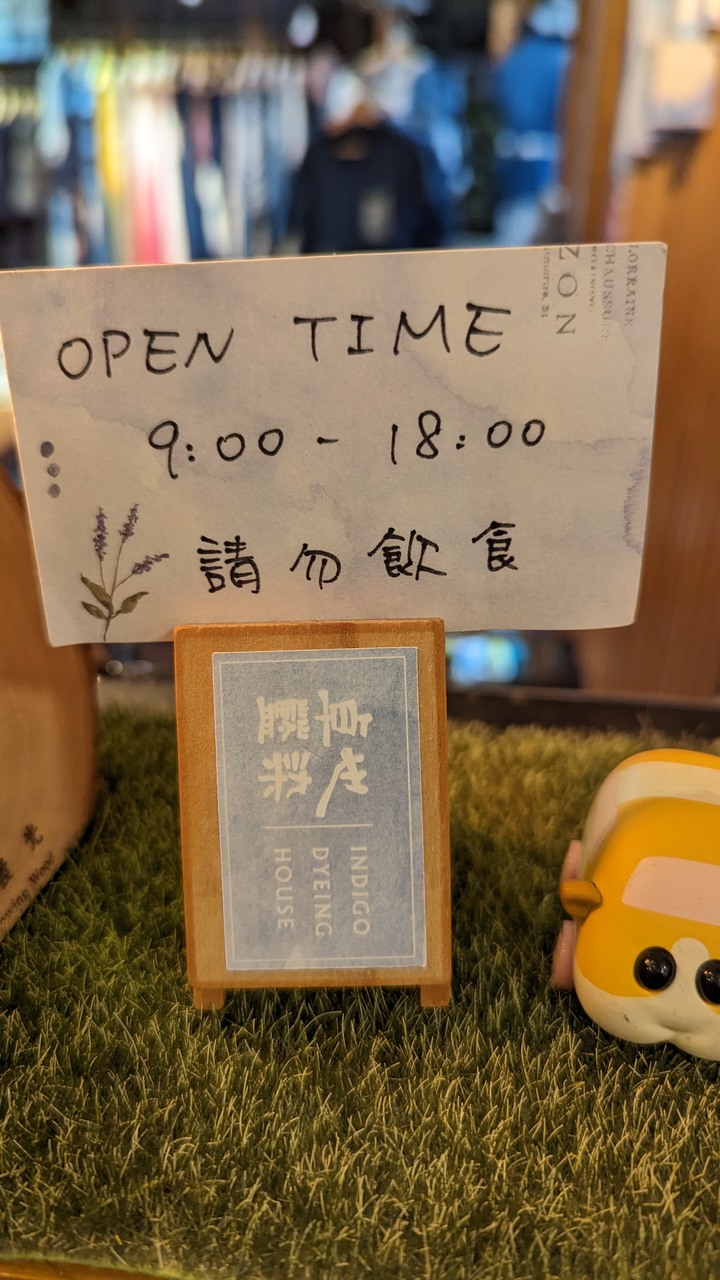 OPEN TIME
9:00 - 18:00
請勿飲食
ZON
LORRAINE
卓也
藍染
INDIGO
DYEING
HOUSE